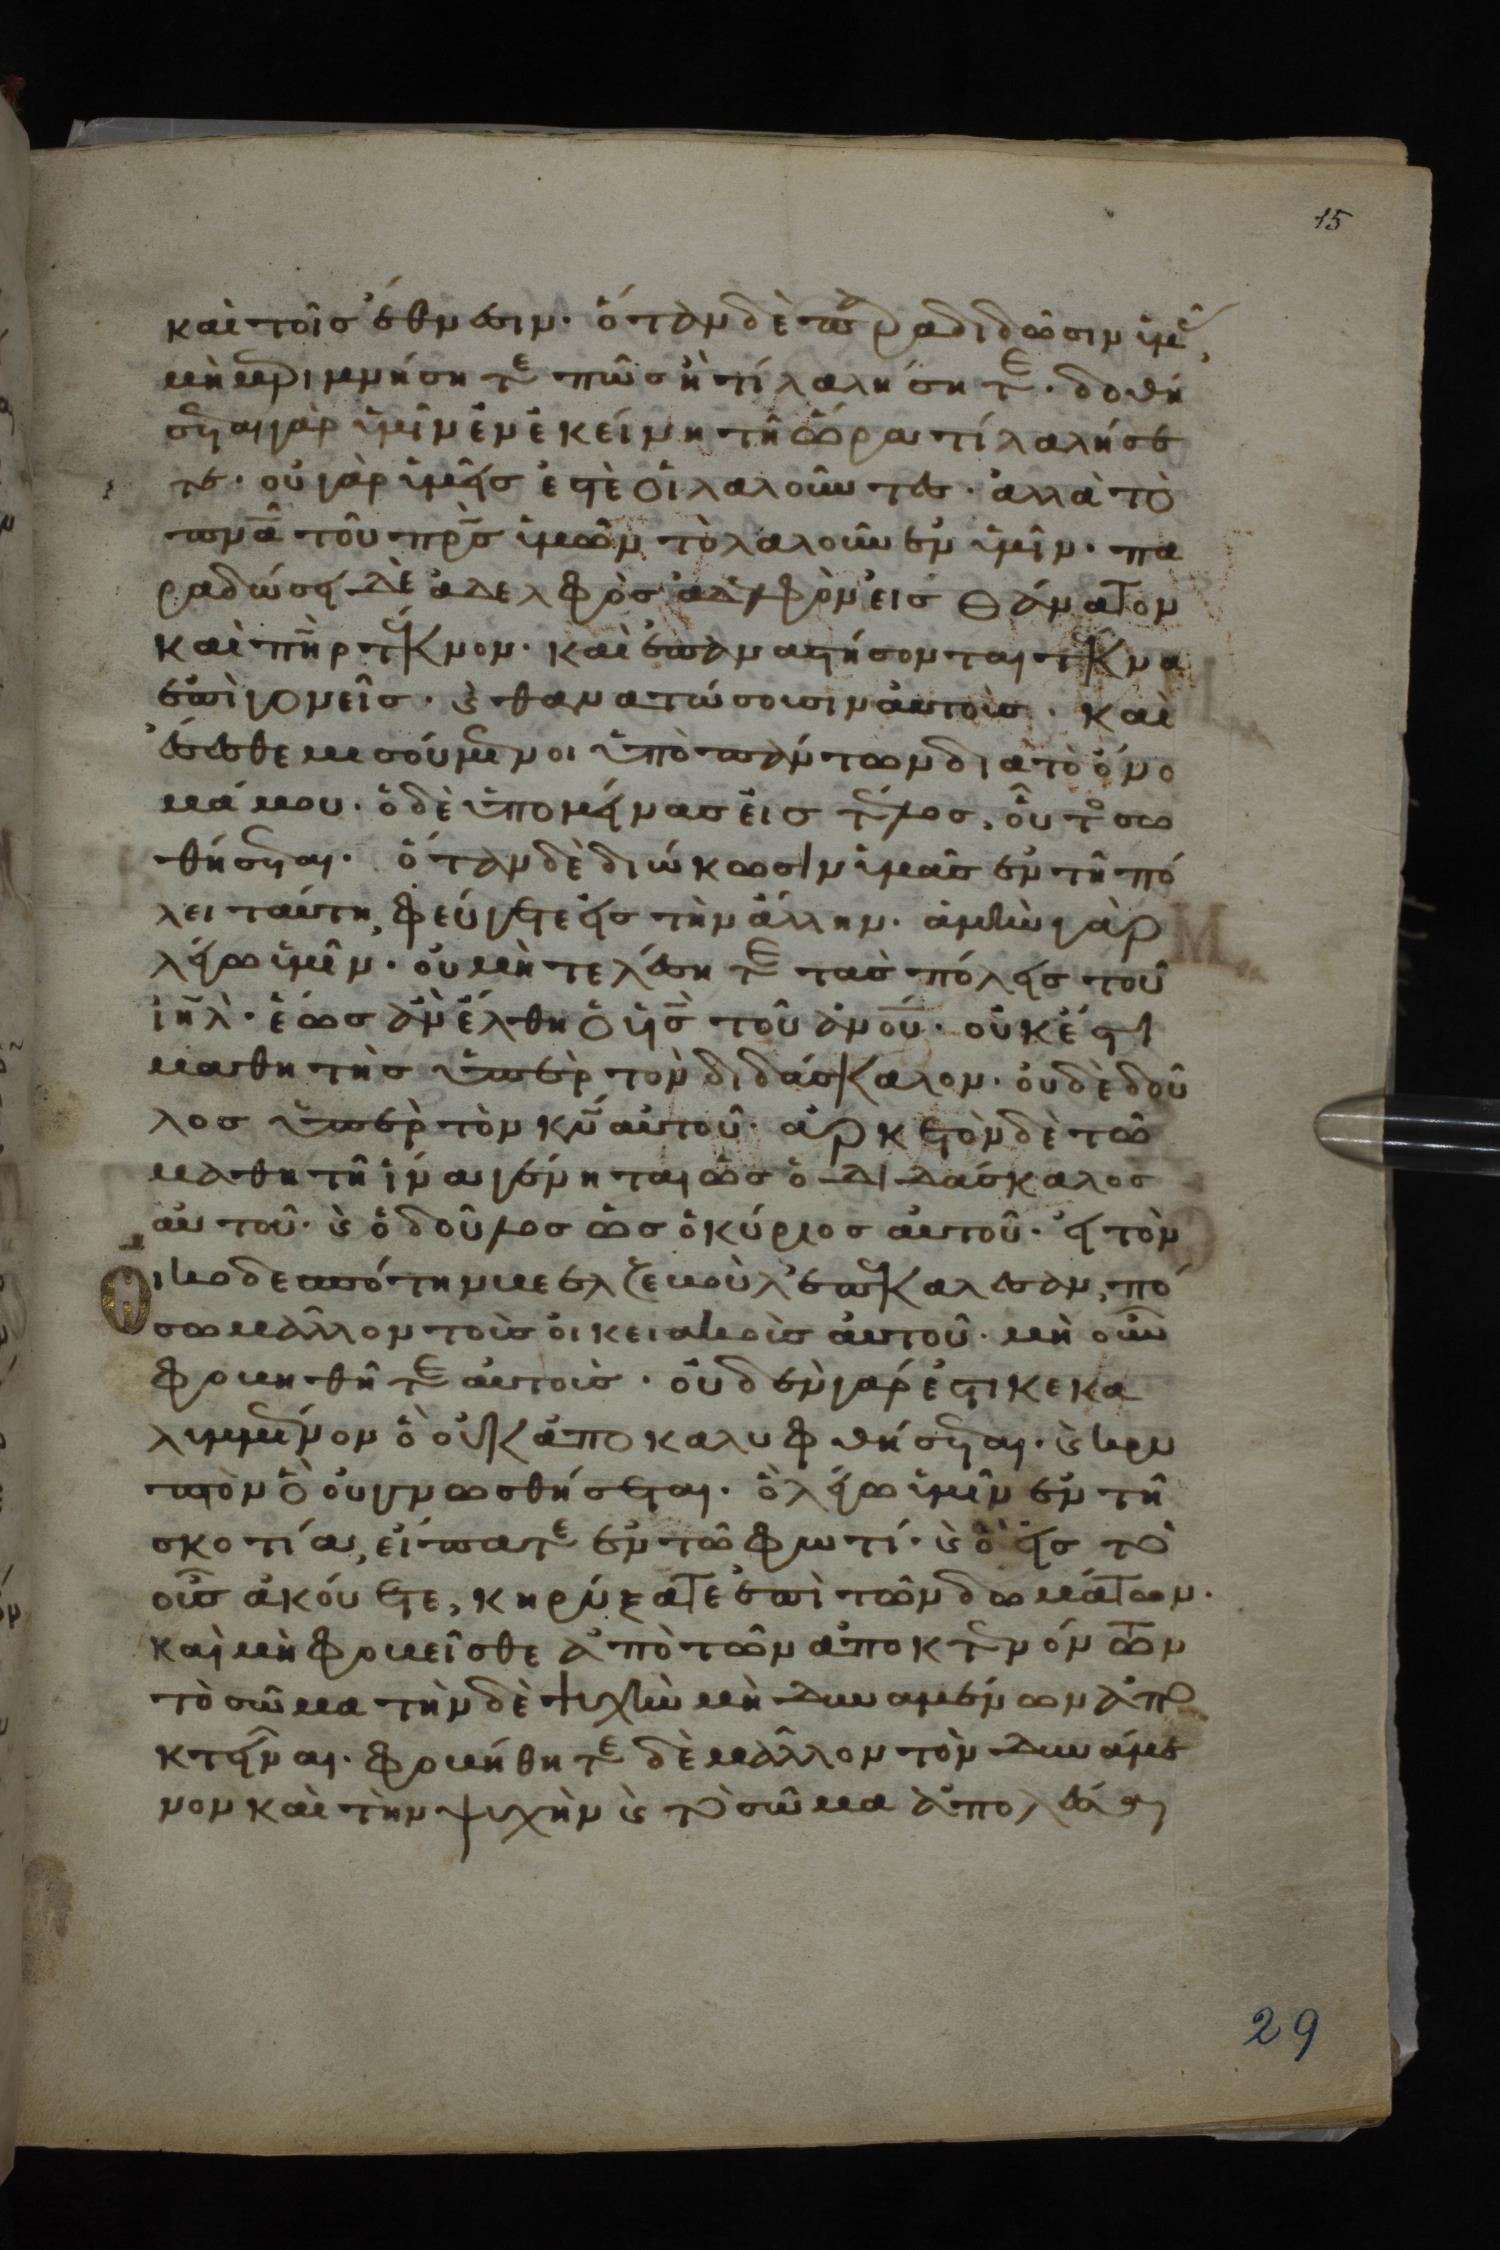 15
καὶ τοῖς ἔθνεσιν· ὅταν δὲ παραδιδῶσιν ὑμᾶς,
μὴ μεριμνήσητε πῶς ἢ τί λαλήσητε· δοθή
σεται γὰρ ὑμῖν ἐν ἐκείνη τῆ ὥρα τί λαλήσε
τε· οὐ γὰρ ὑμεῖς ἐστὲ οἱ λαλοῦντες· ἀλλὰ τὸ
πνᾶ τοῦ πρς ὑμῶν τὸ λαλοῦν ἐν ὑμῖν· πα
ραδώσει δὲ ἀδελφὸς ἀδελφὸν εἰς θάνατον
καὶ πηρ τέκνον· καὶ ἐπαναστήσονται τέκνα
ἐπὶ γονεῖς· καὶ θανατώσουσιν αὐτούς· καὶ
ἔσεσθε μισούμενοι ὑπὸ πάντων διὰ τὸ ὄνο
μά μου· ὁ δὲ ὑπομείνας εἰς τέλος, οὗτος σω
θήσεται· ὅταν δὲ διώκωσιν ὑμᾶς ἐν τῆ πό
λει ταύτη, φεύγετε εἰς τὴν ἄλλην· ἀμὴν γὰρ
λέγω ὑμῖν· οὐ μὴ τελέσητε τὰς πόλεις τοῦ
ιηλ· ἕως ἂν ἔλθη ὁ υς τοῦ ανου· οὐκ ἔστι
μαθητὴς ὑπὲρ τὸν διδάσκαλον· οὐδὲ δοῦ
λος ὑπὲρ τὸν κν αὐτοῦ· ἀρκετὸν δὲ τῶ
μαθητῆ ἵνα γένηται ὡς ὁ διδάσκαλος
αὐτοῦ· καὶ ὁ δοῦλος ὡς ὁ κύριος αὐτοῦ· εἰ τὸν
οἰκοδεσπότην βεελζεβοὺλ ἐπεκάλεσαν, πό
σω μᾶλλον τοὺς οἰκειακοὺς αὐτοῦ· μὴ οὖν
φοβηθῆτε αὐτούς· οὐδὲν γάρ ἐστι κεκα
λυμμένον ὃ οὐκ ἀποκαλυφθήσεται· καὶ κρυ
πτὸν ὃ οὐ γνωσθήσεται· ὃ λέγω ὑμῖν ἐν τῆ
σκοτία, εἴπατε ἐν τῶ φωτί· καὶ ὃ εἰς τὸ
οὖς ἀκούετε, κηρύξατε ἐπὶ τῶν δωμάτων·
καὶ μὴ φοβεῖσθε ἀπὸ τῶν ἀποκτενόντων
τὸ σῶμα τὴν δὲ ψυχὴν μὴ δυναμένων ἀπο
κτεῖναι· φοβήθητε δὲ μᾶλλον τὸν δυνάμε
νον καὶ τὴν ψυχὴν καὶ τὸ σῶμα ἀπολέσαι
29